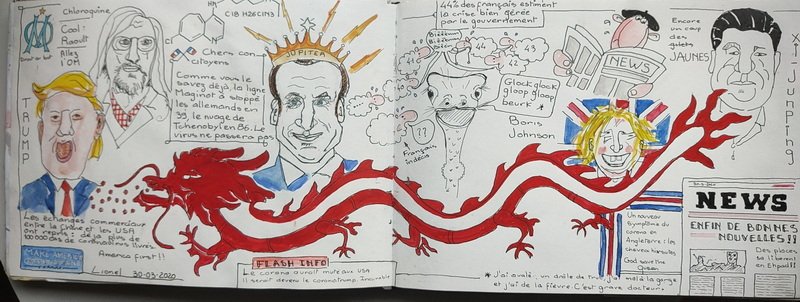 Chloroquine
Cool
Raoult
Allez
l'OM
OM
Droit au but
C18 H26ClN3
N
HN
JUPITER
Chers con-
citoyens
Comme vous le
savez déjà, la ligne
Maginot a stoppé
les allemands en
39, le nuage de
Tchernobyl en 86. Le
virus ne passera pas
TRUMP
Les échanges commerciaux
entre la Chine et les USA
ont repris : déjà plus de
100 000 cas de coronavirus livrés.
America first !!
MAKE AMERICA
Lionel 30-03-2020
FLASH INFO
Le corona aurait muté aux USA
Il serait devenu le coronatrump. Incurable
44% des français estiment
la crise bien gérée
par le gouvernement
44
43
42
41
??
Français
indécis
Glock glock
gloop gloop
beurk *
Boris
Johnson
NEWS
Encore
un coup
des
gilets
JAUNES
Xi-Jinping
Un nouveau
symptôme du
corona en
Angleterre : les
cheveux hirsutes
God save the
Queen
* J'ai avalé un drôle de truc, j'ai mal à la gorge
et j'ai de la fièvre. C'est grave docteur.
NEWS
ENFIN DE BONNES
NOUVELLES !!
Des places
se libèrent
en Ehpad !!